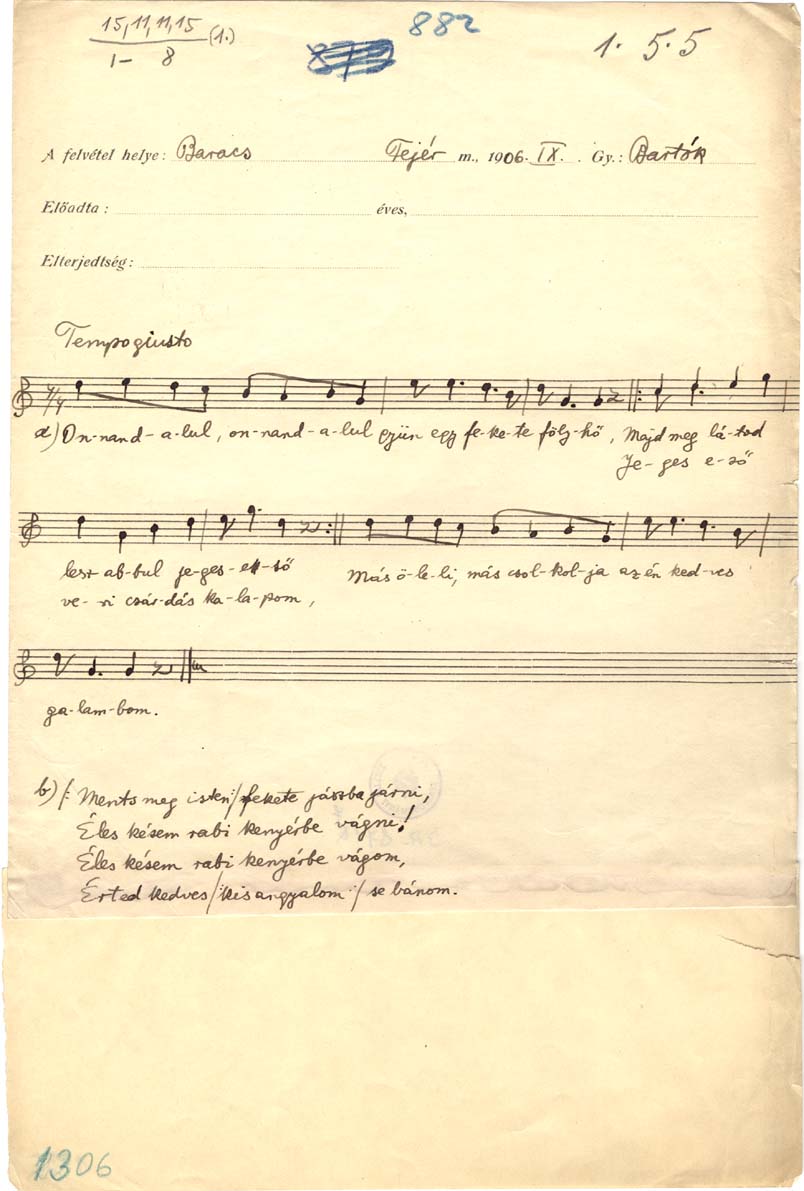 15, 11, 11, 15 (1.)
1- 8
879
882
1. 5. 5
A felvétel helye: Baracs Fejér m., 1906. IX. Gy.: Bartók
Előadta: éves,
Elterjedtség:
Tempo giusto
4/4
a) On-nand-a-lul, on-nand-a-lul gyün egy fe-ke-te föly-hő, Majd meg lá-tod
Je-ges e-ső
lesz ab-bul je-ges-e-ső Más ö-le-li, más csol-kol-ja az én ked-ves
ve-ri csár-dás ka-la-pom,
ga-lam-bom.
b) /: Ments meg isten :/ fekete jászba járni,
Éles késem rabi kenyérbe vágni!
Éles késem rabi kenyérbe vágom,
Érted kedves /: kis angyalom :/ se bánom.
1306